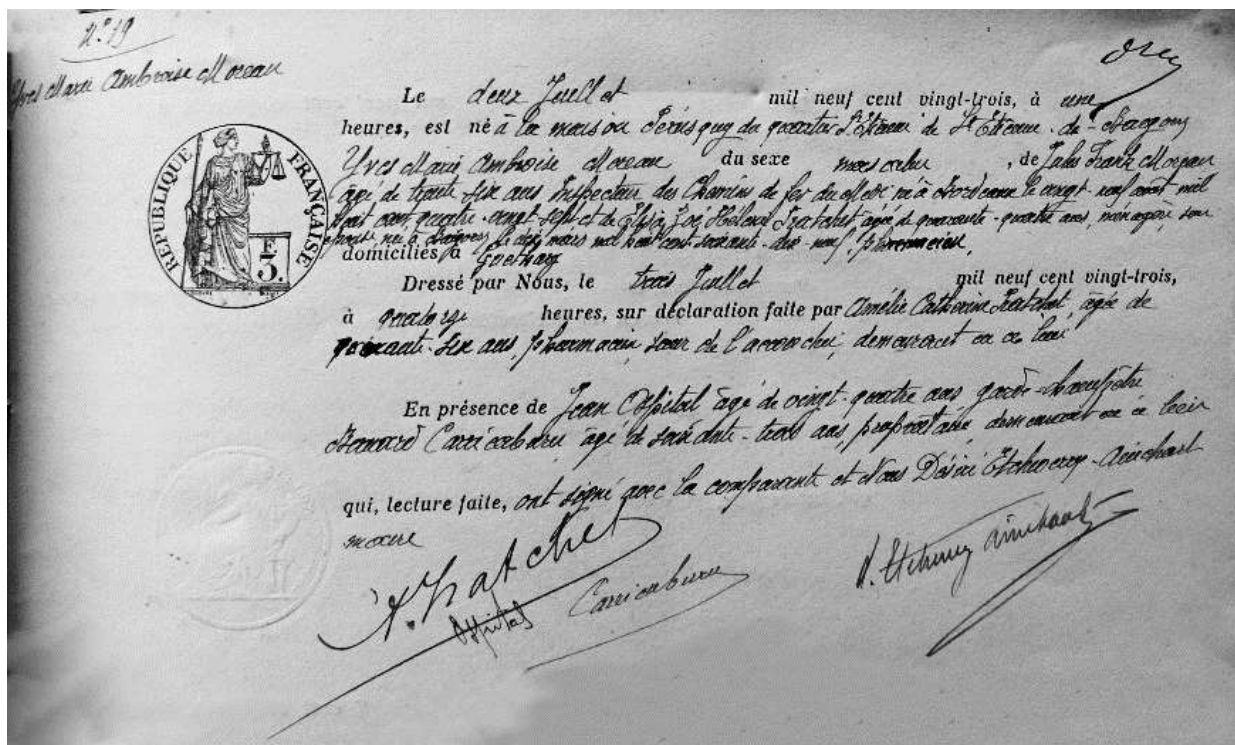 n° 19
Yves Marie Ambroise Moreau
Le deux Juillet mil neuf cent vingt-trois, à une
heures, est né à la maison du quartier de St Etienne - de - Baïgorry
Yves Marie Ambroise Moreau du sexe masculin, de Jules Frank Moreau
âgé de trente six ans Inspecteur des Chemins de fer du Midi né à Bordeaux le vingt-neuf août mil
huit cent quatre-vingt-sept et de Zoé Hélène âgée de quarante-quatre ans, ménagère, son
épouse, née à le dix mars mil huit cent soixante-dix-neuf,
domiciliés à
RÉPUBLIQUE FRANÇAISE
F
3.
Dressé par Nous, le trois Juillet mil neuf cent vingt-trois,
à quatorze heures, sur déclaration faite par Amélie Catherine âgée de
six ans, sœur de l'accouchée, demeurant en ce lieu
En présence de Jean Ospital âgé de vingt-quatre ans garde-champêtre
Carricaburu âgé de soixante-trois ans, propriétaire, demeurant en ce lieu
qui, lecture faite, ont signé avec la comparante et Nous Désiré Etcheverry-Ainchart
maire
Ospital
Carricaburu
D. Etcheverry Ainchart